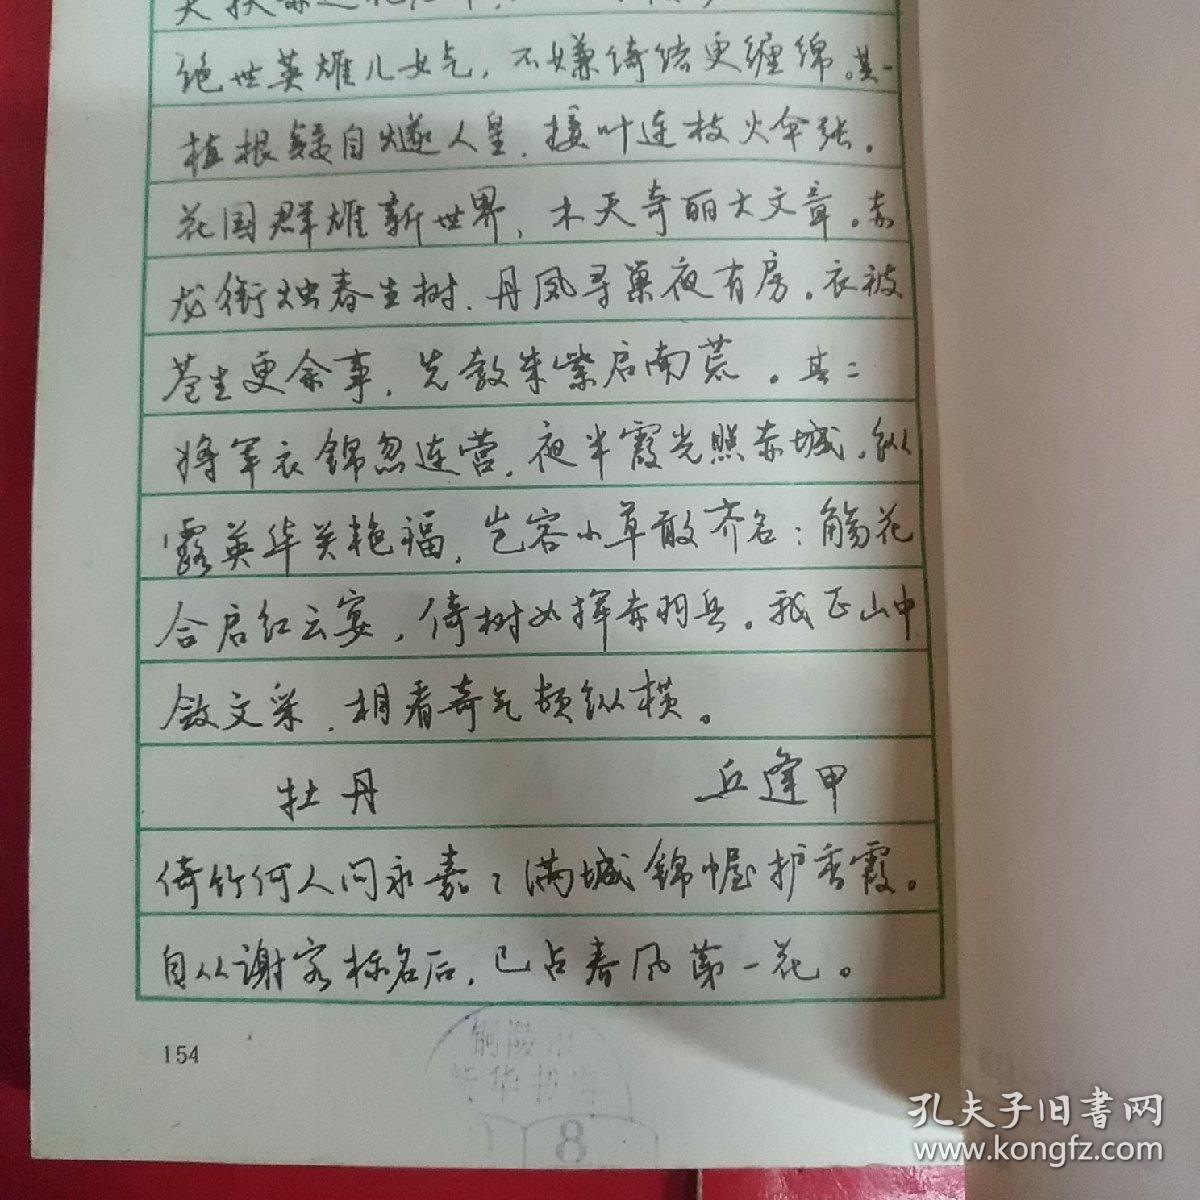 绝世英雄儿女气，不嫌绮语更缠绵。其一
植根疑自燧人皇，接叶连枝火伞张。
花国群雄新世界，木天奇丽大文章。赤
龙衔烛春生树，丹凤寻巢夜有房。衣被
苍生更余事，先敷朱紫启南荒。其二
将军衣锦忽连营，夜半霞光照赤城。纵
露英华关艳福，岂容小草敢齐名：觞花
合启红云宴，倚树如挥赤羽兵。我正山中
敛文采，相看奇气颇纵横。
牡丹 丘逢甲
倚竹何人问永嘉？满城锦幄护香霞。
自从谢客标名后，已占春风第一花。
154
铜陵市
新华书店
8
孔夫子旧书网
www.kongfz.com